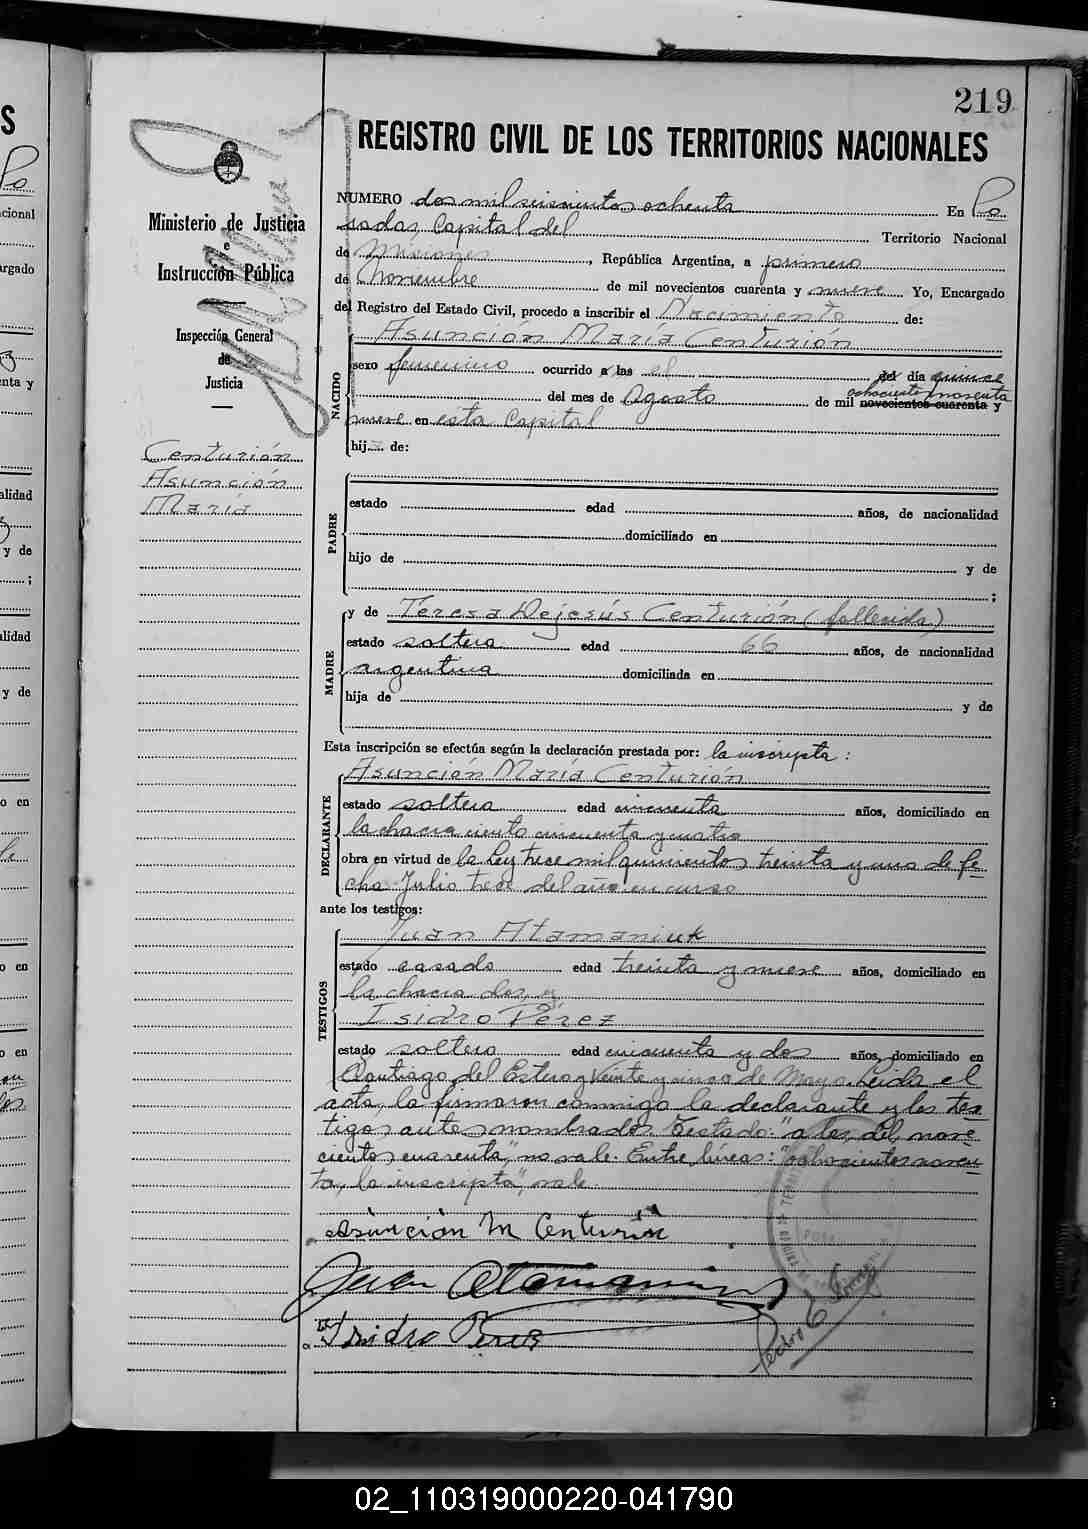 219
REGISTRO CIVIL DE LOS TERRITORIOS NACIONALES
Ministerio de Justicia
e
Instrucción Pública
Inspección General
de
Justicia
Centurión
Asunción
María
NUMERO dos mil seiscientos ochenta En Po
sadas, Capital del Territorio Nacional
de Misiones, República Argentina, a primero
de Noviembre de mil novecientos cuarenta y nueve Yo, Encargado
del Registro del Estado Civil, procedo a inscribir el Nacimiento de:
NACIDO
Asunción María Centurión
sexo femenino ocurrido a las el del día quince
ochocientos noventa
del mes de Agosto de mil novecientos cuarenta y
nueve en esta Capital
hij de:
PADRE
estado edad años, de nacionalidad
domiciliado en
hijo de y de
;
MADRE
y de Teresa Dejesús Centurión (fallecida)
estado soltera edad 66 años, de nacionalidad
argentina domiciliada en
hija de y de
Esta inscripción se efectúa según la declaración prestada por: la inscripta:
DECLARANTE
Asunción María Centurión
estado soltera edad cincuenta años, domiciliado en
la chacra ciento cincuenta y cuatro
obra en virtud de la Ley trece mil quinientos treinta y uno de fe-
cha Julio trece del año en curso
ante los testigos:
TESTIGOS
Juan Atamaniuk
estado casado edad treinta y nueve años, domiciliado en
la chacra dos, y
Isidro Pérez
estado soltero edad cincuenta y dos años, domiciliado en
Santiago del Estero y Veinte y cinco de Mayo. Leída el
acta, la firmaron conmigo la declarante y los tes-
tigos antes nombrados. Testado: "a las, del, nove-
cientos cuarenta", no vale. Entre líneas: "ochocientos noven-
ta, la inscripta", vale.
Asunción M Centurión
Juan Atamaniuk
Isidro Perez
Pedro
02_110319000220-041790